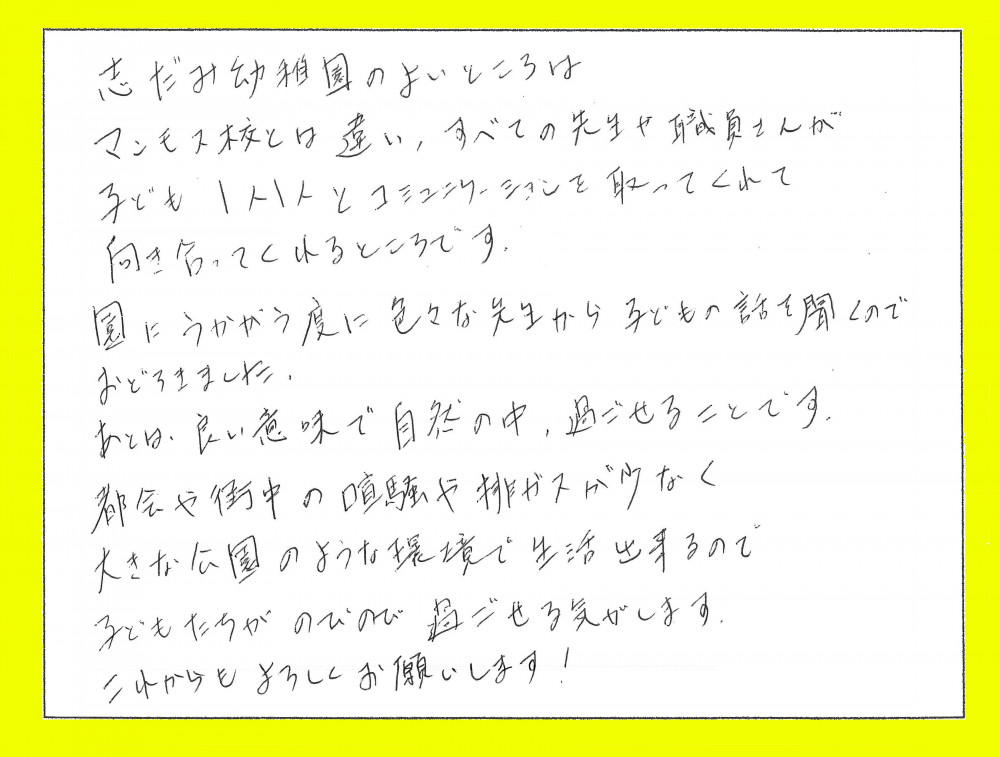 志だみ幼稚園のよいところは
マンモス校とは違い、すべての先生や職員さんが
子ども1人1人とコミュニケーションを取ってくれて
向き合ってくれるところです.
園にうかがう度に色々な先生から子どもの話を聞くので
おどろきました.
あとは、良い意味で自然の中、過ごせることです.
都会や街中の喧騒や排ガスが少なく
大きな公園のような環境で生活出来るので
子どもたちがのびのび過ごせる気がします.
これからもよろしくお願いします!